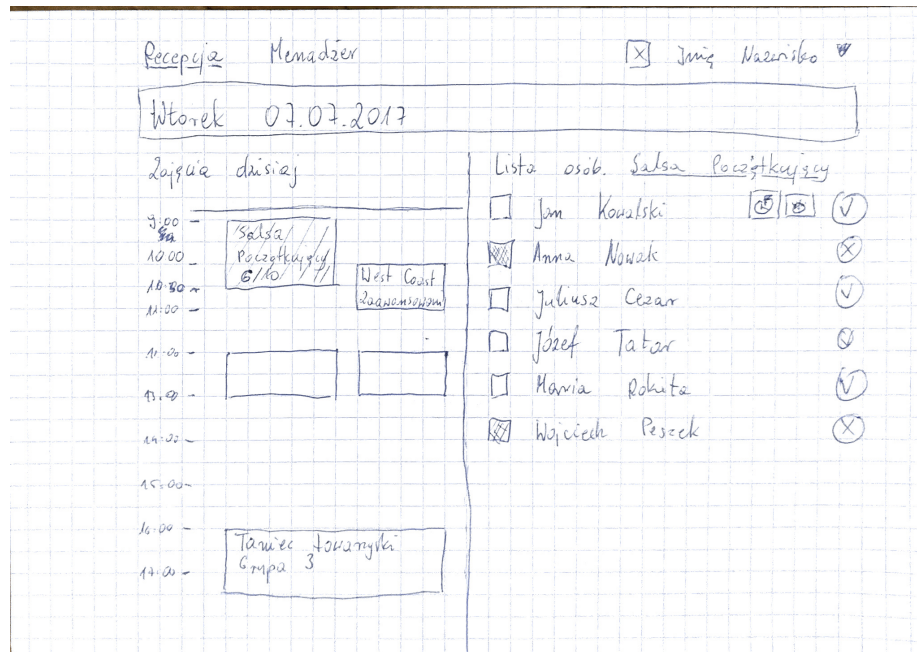 Recepcja Menadżer
Imię Nazwisko
Wtorek 07.07.2017
Zajęcia dzisiaj
9:00
10:00
10:30
11:00
13:00
14:00
15:00
16:00
17:00
Salsa
Początkujący
6/10
West Coast
Zaawansowani
Taniec towarzyski
Grupa 3
Lista osób. Salsa Początkujący
Jan Kowalski
Anna Nowak
Juliusz Cezar
Józef Tatar
Maria Rokita
Wojciech Peszek